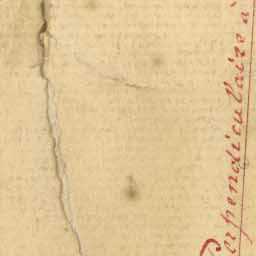 Perpendiculaire à